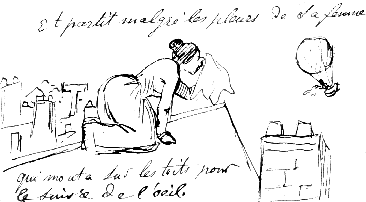 Et partit malgré les pleurs de sa femme
qui monta sur les toits pour
le suivre de l'œil.